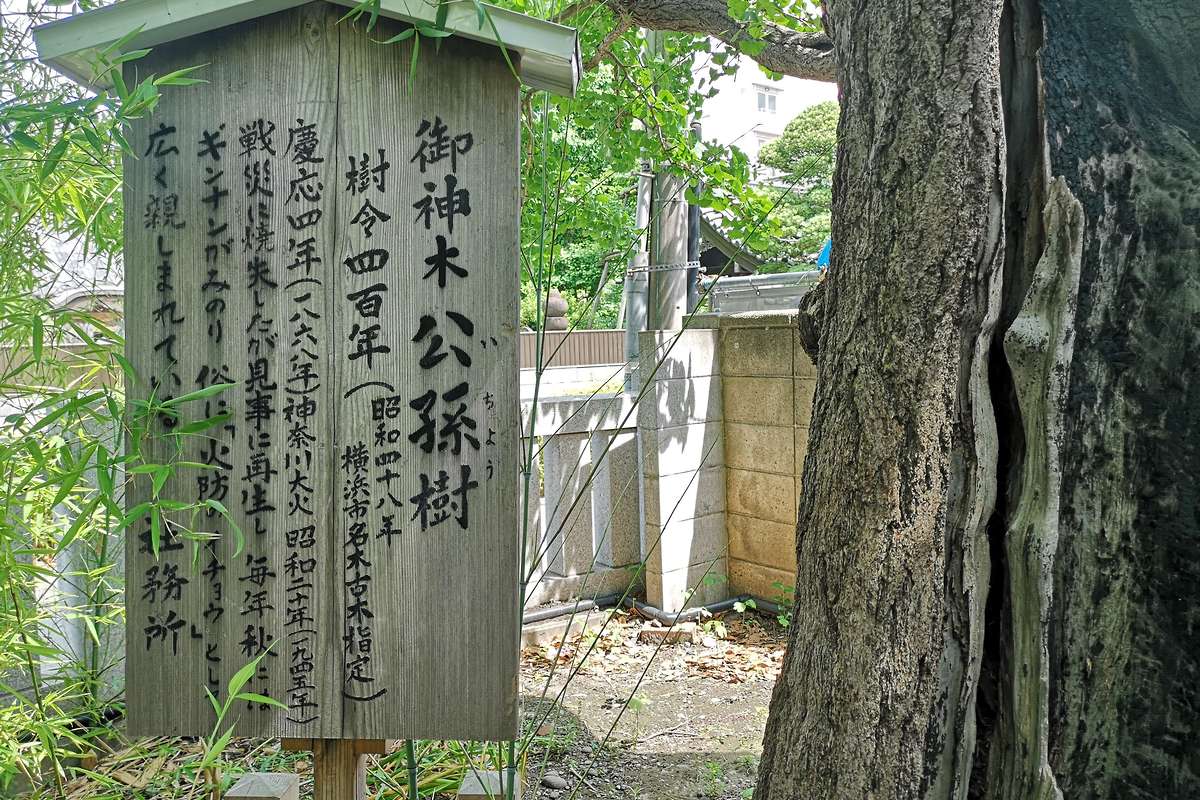 御神木公孫樹
いちょう
樹令四百年(昭和四十八年
横浜市名木古木指定)
慶応四年(一八六八年)神奈川大火 昭和二十年(一九四五年)
戦災に焼失したが見事に再生し 毎年秋には
ギンナンがみのり 俗に「火防のイチョウ」とし
広く親しまれている 社務所